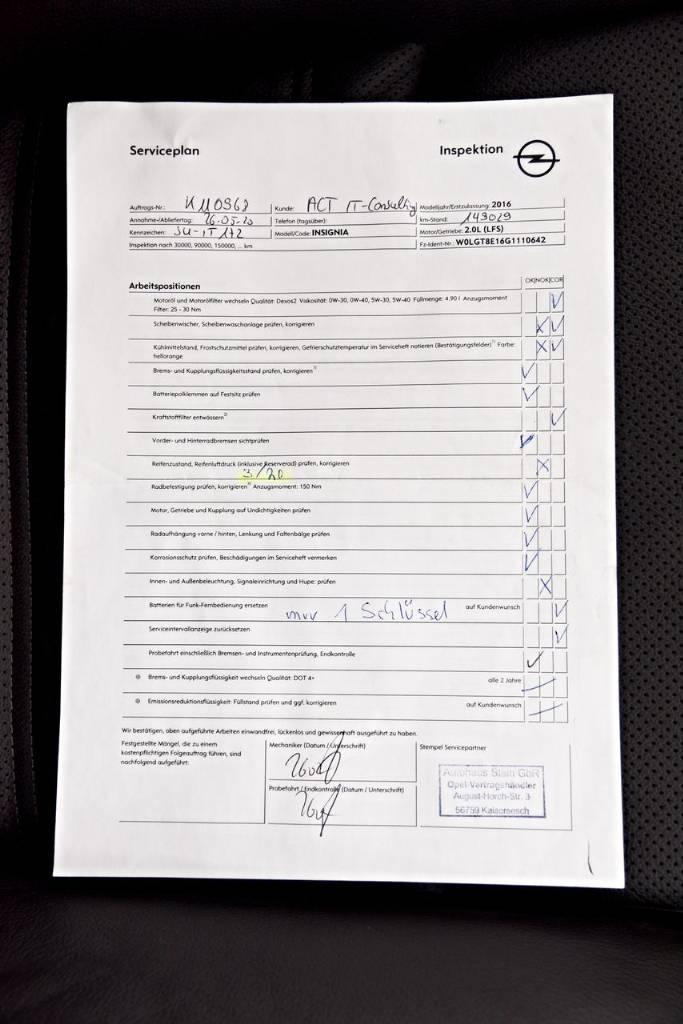 Serviceplan
Inspektion
Auftrags-Nr.: KM0968 Kunde: ACT IT-Consulting Modelljahr/Erstzulassung: 2016
Annahme-/Abliefertag: 26.05.20 Telefon (tagsüber): km-Stand: 149029
Kennzeichen: SU-IT 172 Modell/Code: INSIGNIA Motor/Getriebe: 2.0L (LFS)
Inspektion nach 30000, 90000, 150000, ... km Fz-Ident-Nr.: W0LGT8E16G1110642
Arbeitspositionen OK NOK COR
Motoröl und Motorölfilter wechseln Qualität: Dexos2 Viskosität: 0W-30, 0W-40, 5W-30, 5W-40 Füllmenge: 4,90 l Anzugsmoment
Filter: 25 - 30 Nm
Scheibenwischer, Scheibenwaschanlage prüfen, korrigieren
Kühlmittelstand, Frostschutzmittel prüfen, korrigieren, Gefrierschutztemperatur im Serviceheft notieren (Bestätigungsfelder) Farbe:
hellorange
Brems- und Kupplungsflüssigkeitsstand prüfen, korrigieren
Batteriepolklemmen auf Festsitz prüfen
Kraftstofffilter entwässern
Vorder- und Hinterradbremsen sichtprüfen
Reifenzustand, Reifenluftdruck (inklusive Reserverad) prüfen, korrigieren
3/20
Radbefestigung prüfen, korrigieren Anzugsmoment: 150 Nm
Motor, Getriebe und Kupplung auf Undichtigkeiten prüfen
Radaufhängung vorne / hinten, Lenkung und Faltenbälge prüfen
Korrosionsschutz prüfen, Beschädigungen im Serviceheft vermerken
Innen- und Außenbeleuchtung, Signaleinrichtung und Hupe: prüfen
Batterien für Funk-Fernbedienung ersetzen nur 1 Schlüssel auf Kundenwunsch
Serviceintervallanzeige zurücksetzen
Probefahrt einschließlich Bremsen- und Instrumentenprüfung, Endkontrolle
Brems- und Kupplungsflüssigkeit wechseln Qualität: DOT 4+ alle 2 Jahre
Emissionsreduktionsflüssigkeit: Füllstand prüfen und ggf. korrigieren auf Kundenwunsch
Wir bestätigen, oben aufgeführte Arbeiten einwandfrei, lückenlos und gewissenhaft ausgeführt zu haben.
Festgestellte Mängel, die zu einem
kostenpflichtigen Folgeauftrag führen, sind
nachfolgend aufgeführt:
Mechaniker (Datum / Unterschrift)
Probefahrt / Endkontrolle (Datum / Unterschrift)
Stempel Servicepartner
Autohaus Stein GbR
Opel-Vertragshändler
August-Horch-Str. 3
56759 Kaisersesch